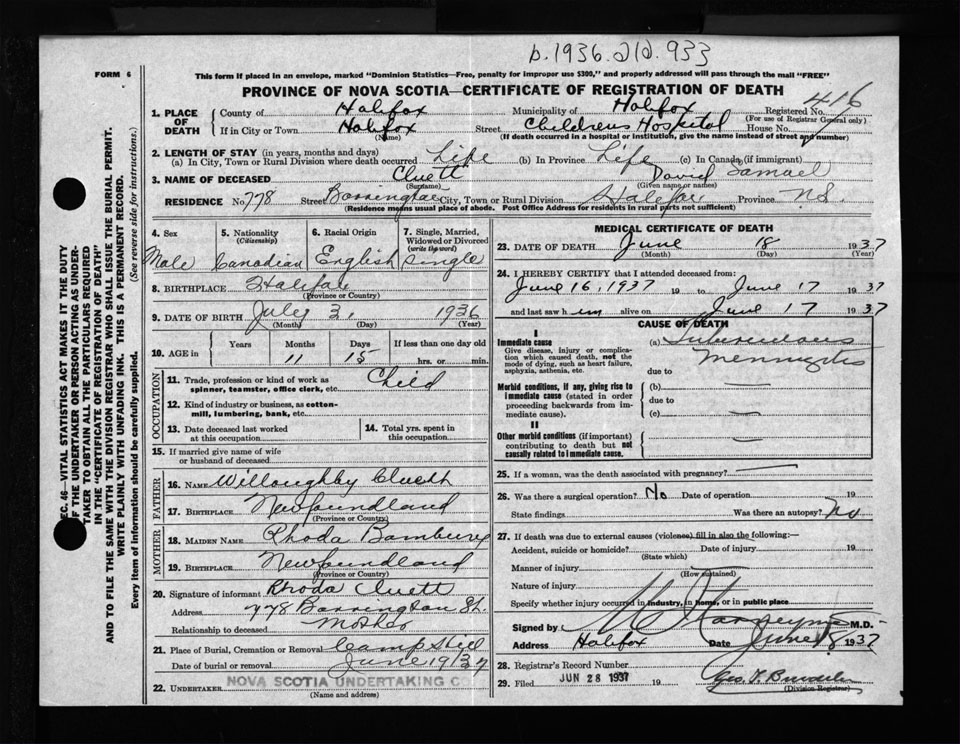 b.1936.210.933
FORM 6
This form if placed in an envelope, marked "Dominion Statistics—Free, penalty for improper use $300," and properly addressed will pass through the mail "FREE"
PROVINCE OF NOVA SCOTIA—CERTIFICATE OF REGISTRATION OF DEATH
1. PLACE OF DEATH County of Halifax Municipality of Halifax Registered No. 416
(For use of Registrar General only)
If in City or Town Halifax Street Childrens Hospital House No.
(Name) (If death occurred in a hospital or institution, give the name instead of street and number)
2. LENGTH OF STAY (in years, months and days)
(a) In City, Town or Rural Division where death occurred Life (b) In Province Life (c) In Canada (if immigrant)
3. NAME OF DECEASED Cluett David Samuel
(Surname) (Given name or names)
RESIDENCE No. 778 Street Barrington City, Town or Rural Division Halifax Province N.S.
(Residence means usual place of abode. Post Office Address for residents in rural parts not sufficient)
4. Sex Male
5. Nationality (Citizenship) Canadian
6. Racial Origin English
7. Single, Married, Widowed or Divorced (write the word) Single
8. BIRTHPLACE Halifax
(Province or Country)
9. DATE OF BIRTH July 3, 1936
(Month) (Day) (Year)
10. AGE in Years Months Days If less than one day old
11 15 hrs. or min.
OCCUPATION
11. Trade, profession or kind of work as spinner, teamster, office clerk, etc. Child
12. Kind of industry or business, as cotton-mill, lumbering, bank, etc.
13. Date deceased last worked at this occupation
14. Total yrs. spent in this occupation
15. If married give name of wife or husband of deceased
FATHER
16. NAME Willoughby Cluett
17. BIRTHPLACE Newfoundland
(Province or Country)
MOTHER
18. MAIDEN NAME Rhoda Bambury
19. BIRTHPLACE Newfoundland
(Province or Country)
20. Signature of informant Rhoda Cluett
Address 778 Barrington St.
Relationship to deceased Mother
21. Place of Burial, Cremation or Removal Camp Hill
Date of burial or removal June 19/37
22. UNDERTAKER NOVA SCOTIA UNDERTAKING C
(Name and address)
MEDICAL CERTIFICATE OF DEATH
23. DATE OF DEATH June 18 1937
(Month) (Day) (Year)
24. I HEREBY CERTIFY that I attended deceased from:
June 16, 1937 19 to June 17 1937
and last saw him alive on June 17 1937
CAUSE OF DEATH
I
Immediate cause (a) Tuberculous
Give disease, injury or complication which caused death, not the mode of dying, such as heart failure, asphyxia, asthenia, etc. Meningitis
due to
Morbid conditions, if any, giving rise to immediate cause (stated in order proceeding backwards from immediate cause). (b) —
due to
(c) —
II
Other morbid conditions (if important) contributing to death but not causally related to immediate cause. —
25. If a woman, was the death associated with pregnancy? —
26. Was there a surgical operation? No Date of operation 19
State findings Was there an autopsy? No
27. If death was due to external causes (violence) fill in also the following:—
Accident, suicide or homicide? Date of injury 19
(State which)
Manner of injury
(How sustained)
Nature of injury
Specify whether injury occurred in industry, in home, or in public place
Signed by M.D.
Address Halifax Date June 18 1937
28. Registrar's Record Number
29. Filed JUN 28 1937 19 Geo. F.
(Division Registrar)
SEC. 46—VITAL STATISTICS ACT MAKES IT THE DUTY
OF THE UNDERTAKER OR PERSON ACTING AS UNDER-
TAKER TO OBTAIN ALL THE PARTICULARS REQUIRED
IN THE "CERTIFICATE OF REGISTRATION OF DEATH"
AND TO FILE THE SAME WITH THE DIVISION REGISTRAR WHO SHALL ISSUE THE BURIAL PERMIT.
WRITE PLAINLY WITH UNFADING INK. THIS IS A PERMANENT RECORD.
Every item of information should be carefully supplied. (See reverse side for instructions.)